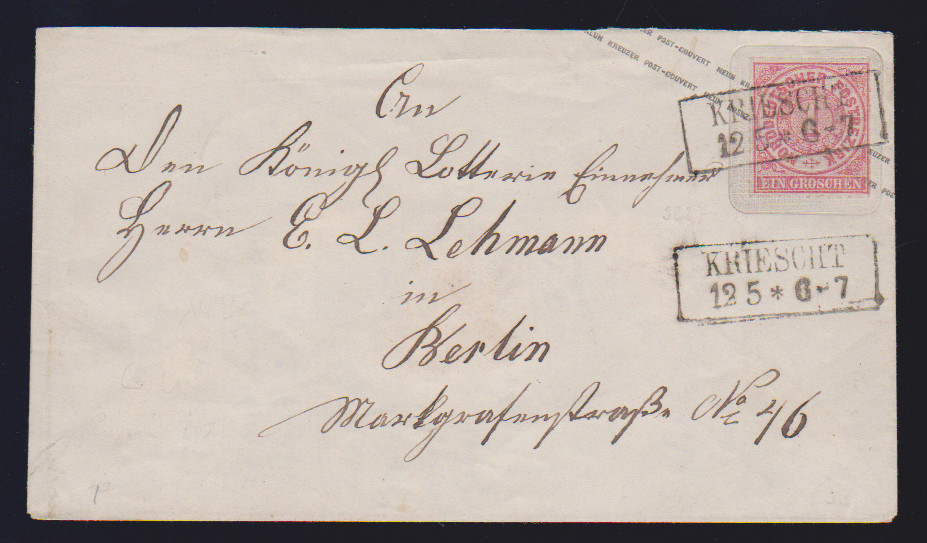 NEUN KREUZER POST-COUVERT NEUN KREUZER
POST-COUVERT NEUN KREUZER
NORDDEUTSCHER POSTBEZIRK
1
EIN GROSCHEN
KRIESCHT
12 5 * 6-7
An
Den Königl Lotterie Einnehmer
Herrn E. L. Lehmann
in
Berlin
Markgrafenstraße No 46
KRIESCHT
12 5 * 6-7